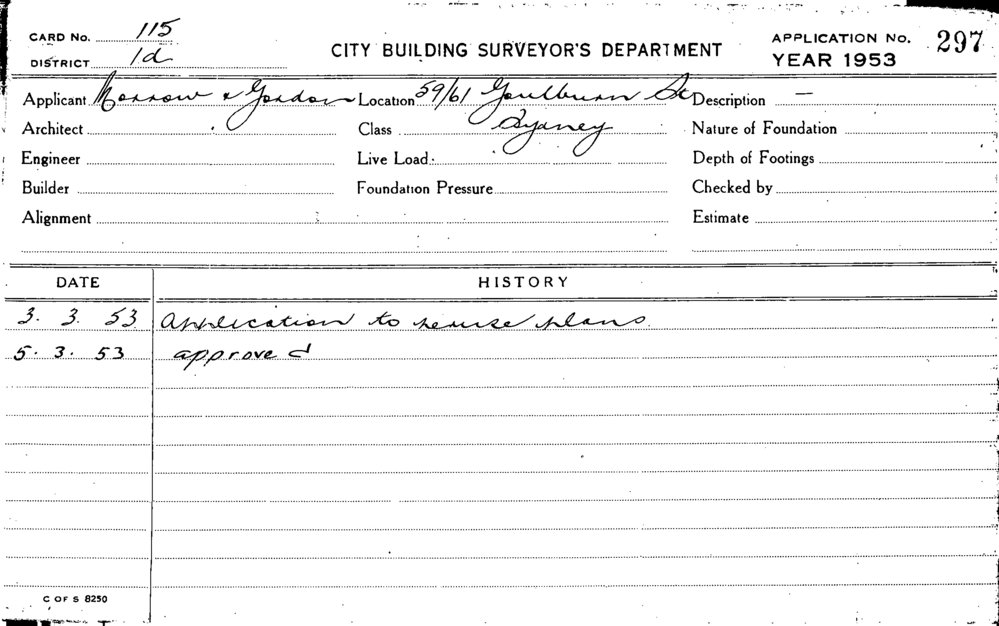 CARD No. 115
CITY BUILDING SURVEYOR'S DEPARTMENT
APPLICATION No. 297
DISTRICT 1d
YEAR 1953
Applicant Morrow & Gordon Location 59/61 Goulburn St Description —
Architect Class Sydney Nature of Foundation
Engineer Live Load Depth of Footings
Builder Foundation Pressure Checked by
Alignment Estimate
DATE HISTORY
3. 3. 53 Application to peruse plans
5. 3. 53 approved
C OF S 8250